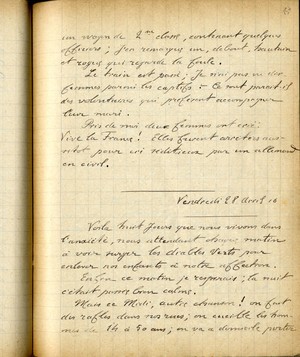 un wagon de 2me classe, contenant quelques
officiers ; j'en remarque un, debout, hautain
et rogue qui regarde la foule.
Le train est passé, je n'ai pas vu de
femmes parmi les captifs
des volontaires qui préfèrent accompagner
leur mari.
Près de moi deux femmes ont crié :
Vive la France ! Elles furent arrêtées aus-
sitôt pour cri séditieux par un allemand
en civil.
Vendredi 28 avril 16
Voilà huit jours que nous vivons dans
l'anxiété, nous attendant chaque matin
à voir surgir les diables verts pour
enlever nos enfants à notre affection.
Enfin ce matin je respirais, la nuit
s'était passée bien calme.
Mais ce Midi, autre chanson ! on fait
des rafles dans nos rues ; on cueille les hom-
mes de 14 à 50 ans ; on va à domicile porter